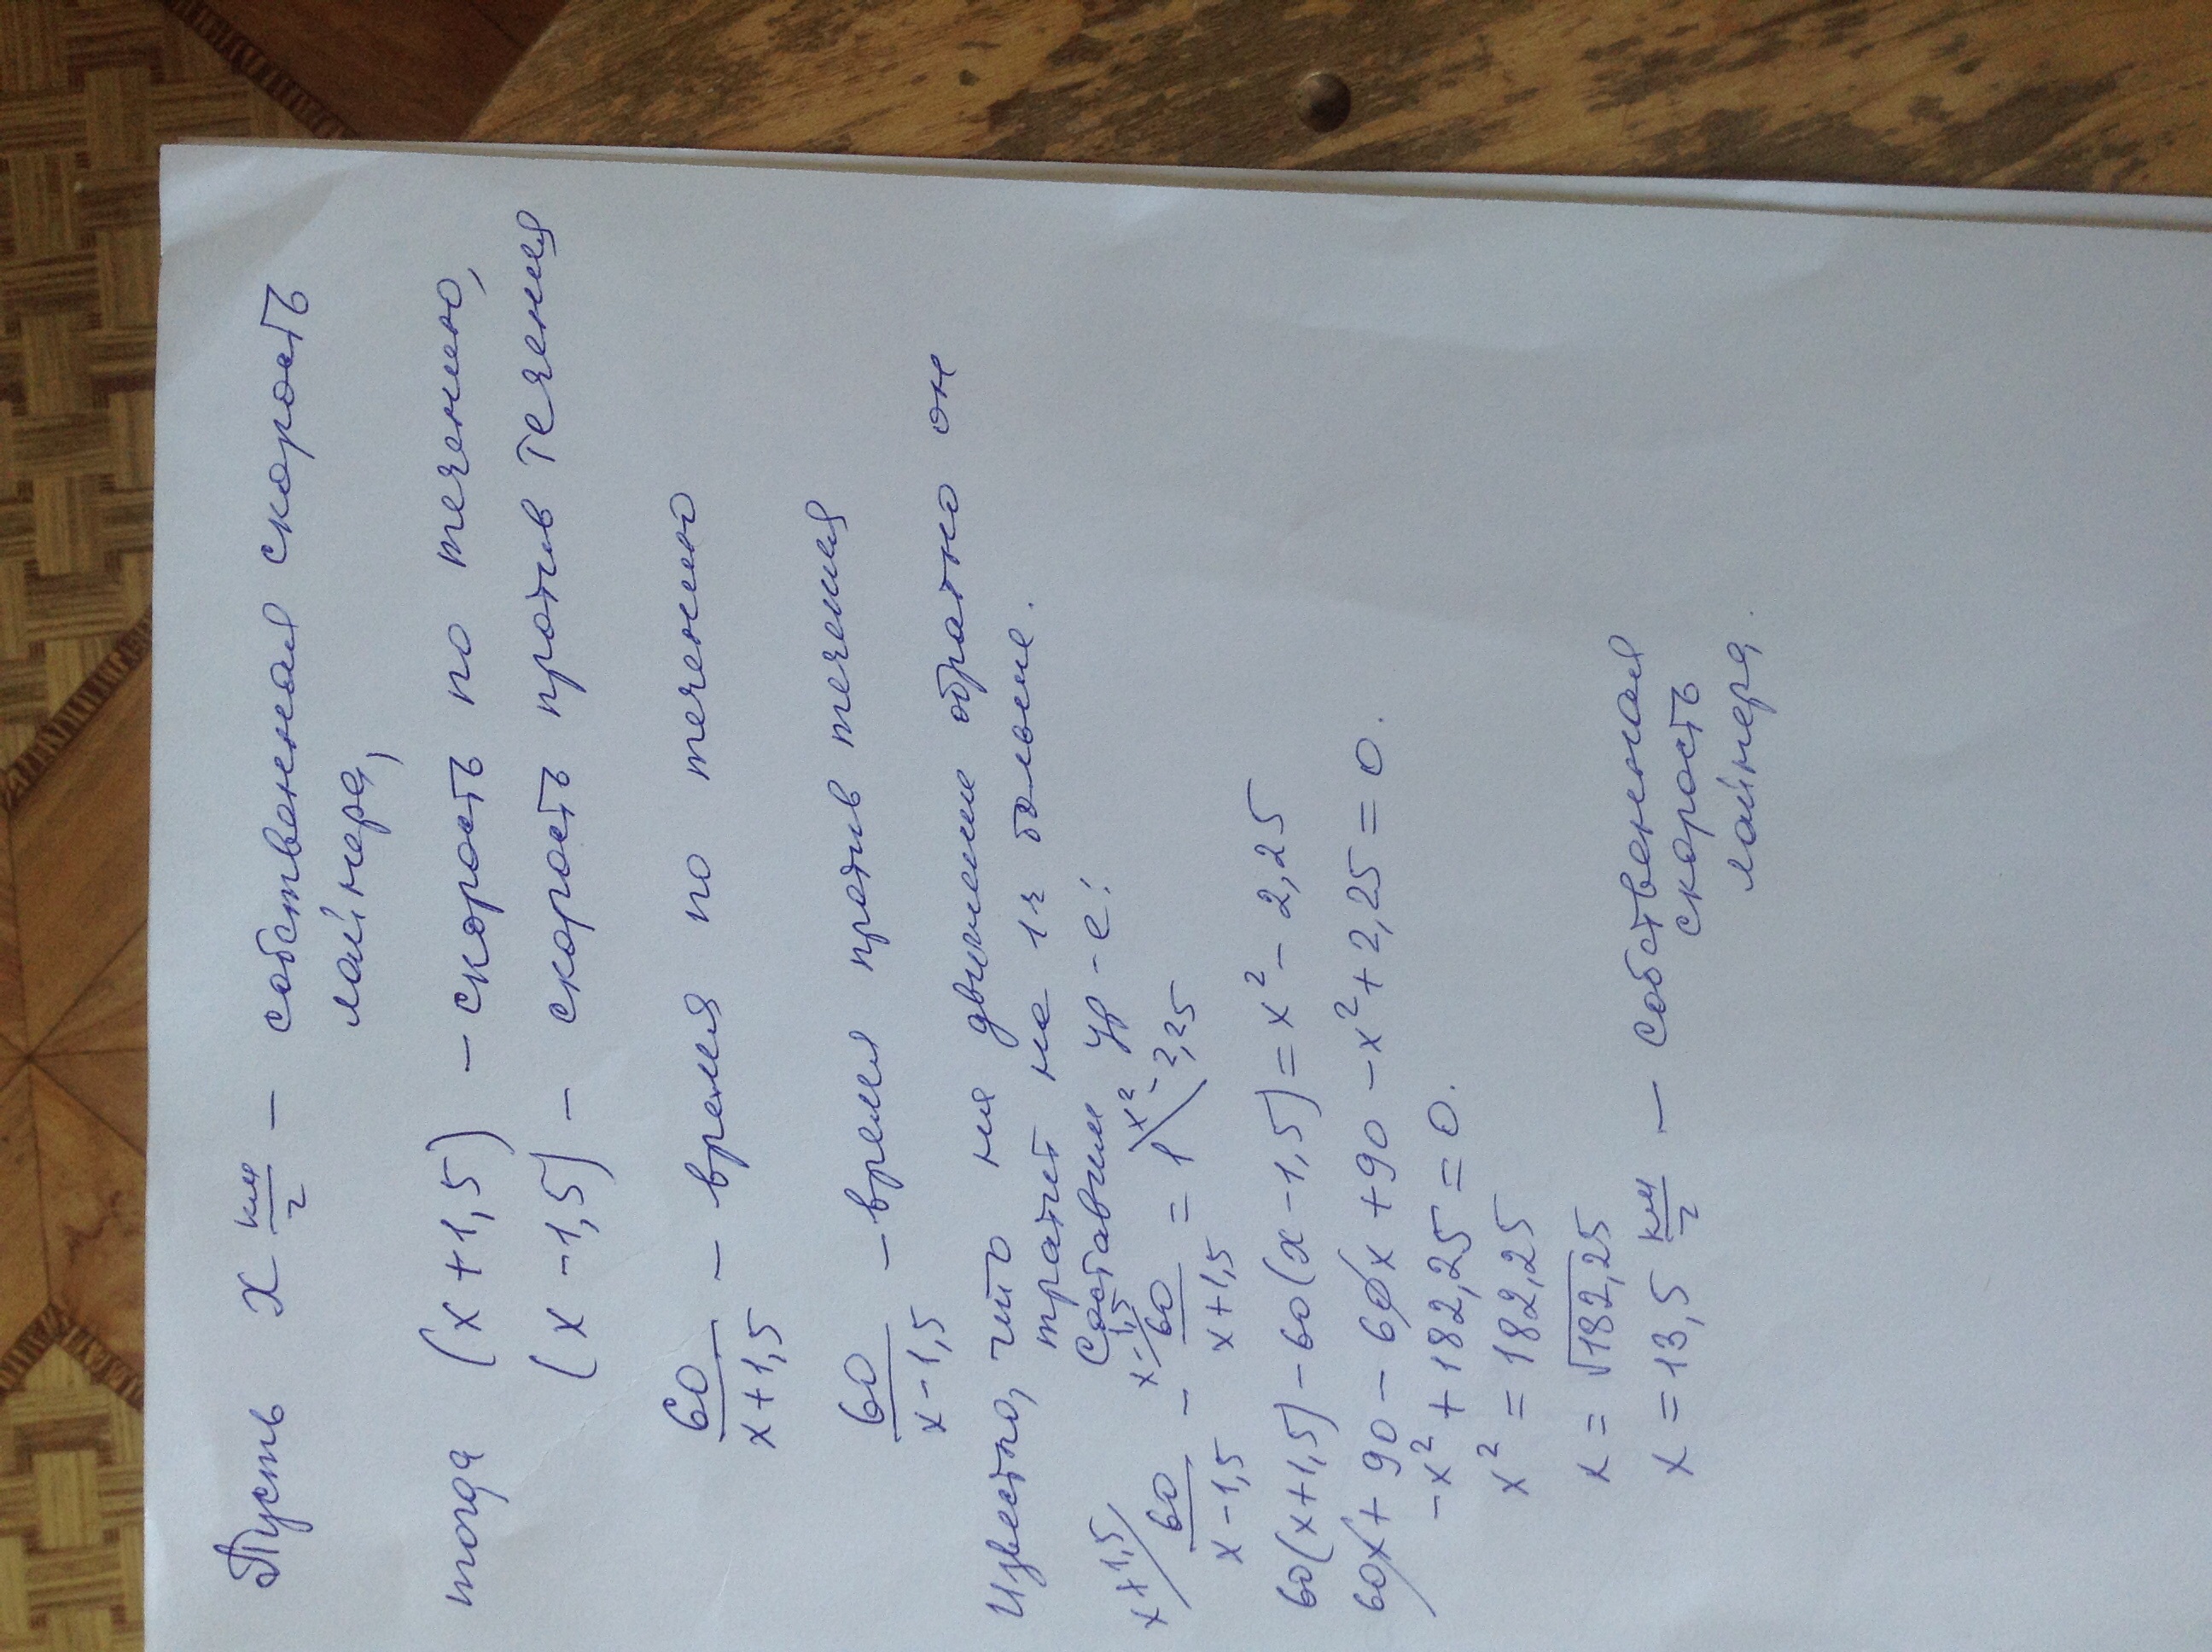 Пусть x км/ч – собственная скорость
лайнера,
тогда (x + 1,5) – скорость по течению,
(x - 1,5) – скорость против течения
60/(x + 1,5) – время по течению
60/(x - 1,5) – время против течения
Известно, что на движение обратно он
тратит на 1ч больше.
Составим ур-е:
x+1,5/ 60/(x - 1,5) - x-1,5/ 60/(x + 1,5) = 1\x² - 2,25
60(x+1,5) - 60(x-1,5) = x² - 2,25
60x + 90 - 60x + 90 - x² + 2,25 = 0.
-x² + 182,25 = 0.
x² = 182,25
x = √182,25
x = 13,5 км/ч – собственная
скорость
лайнера.